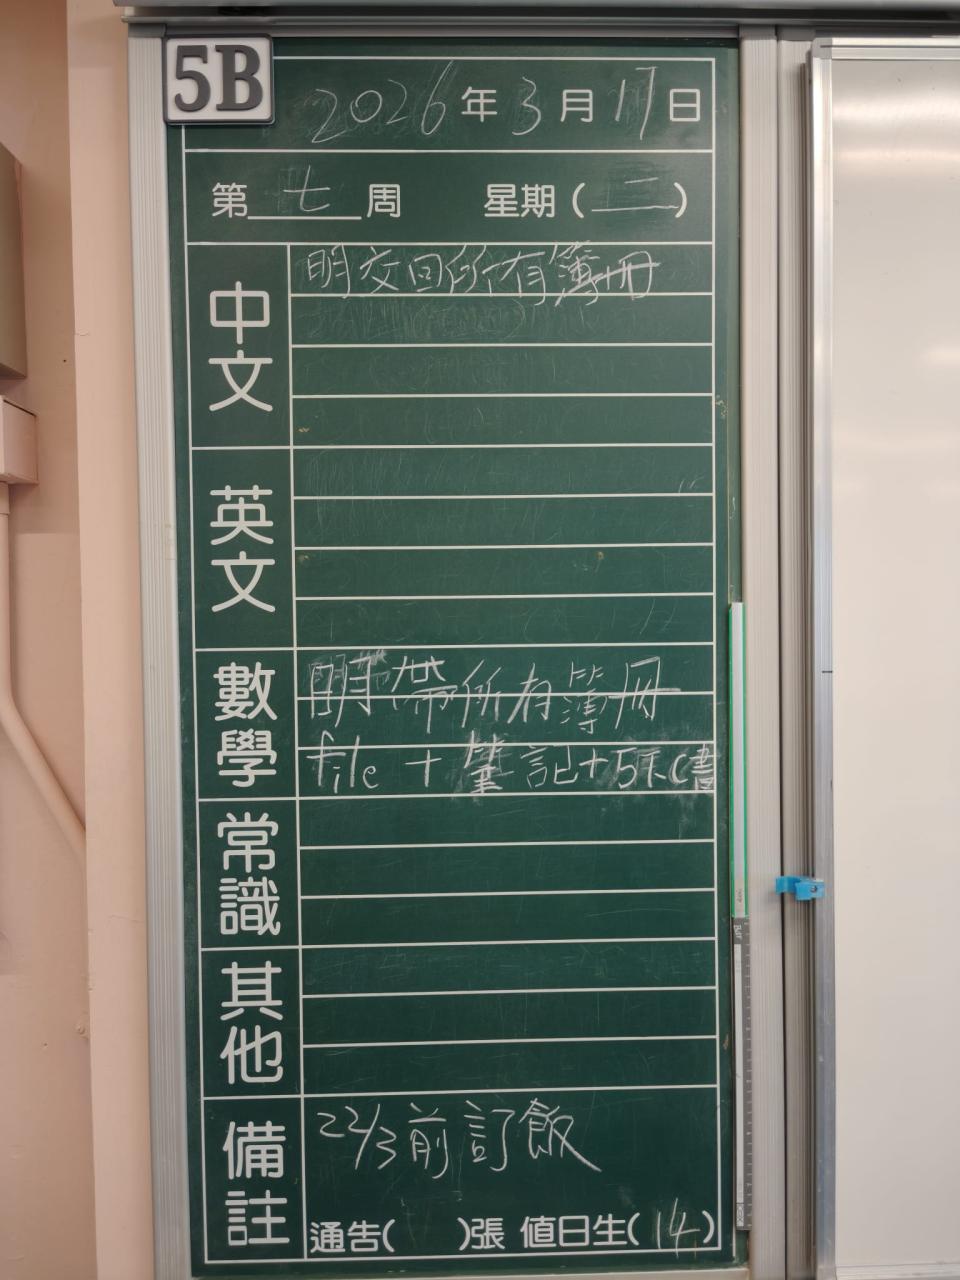 5B
2026年3月17日
第七周 星期(二)
中文
明交回所有簿冊
英文
數學
明帶所有簿冊
file+筆記+5下C書
常識
其他
備註
22/3前訂飯
通告( )張 值日生(14)